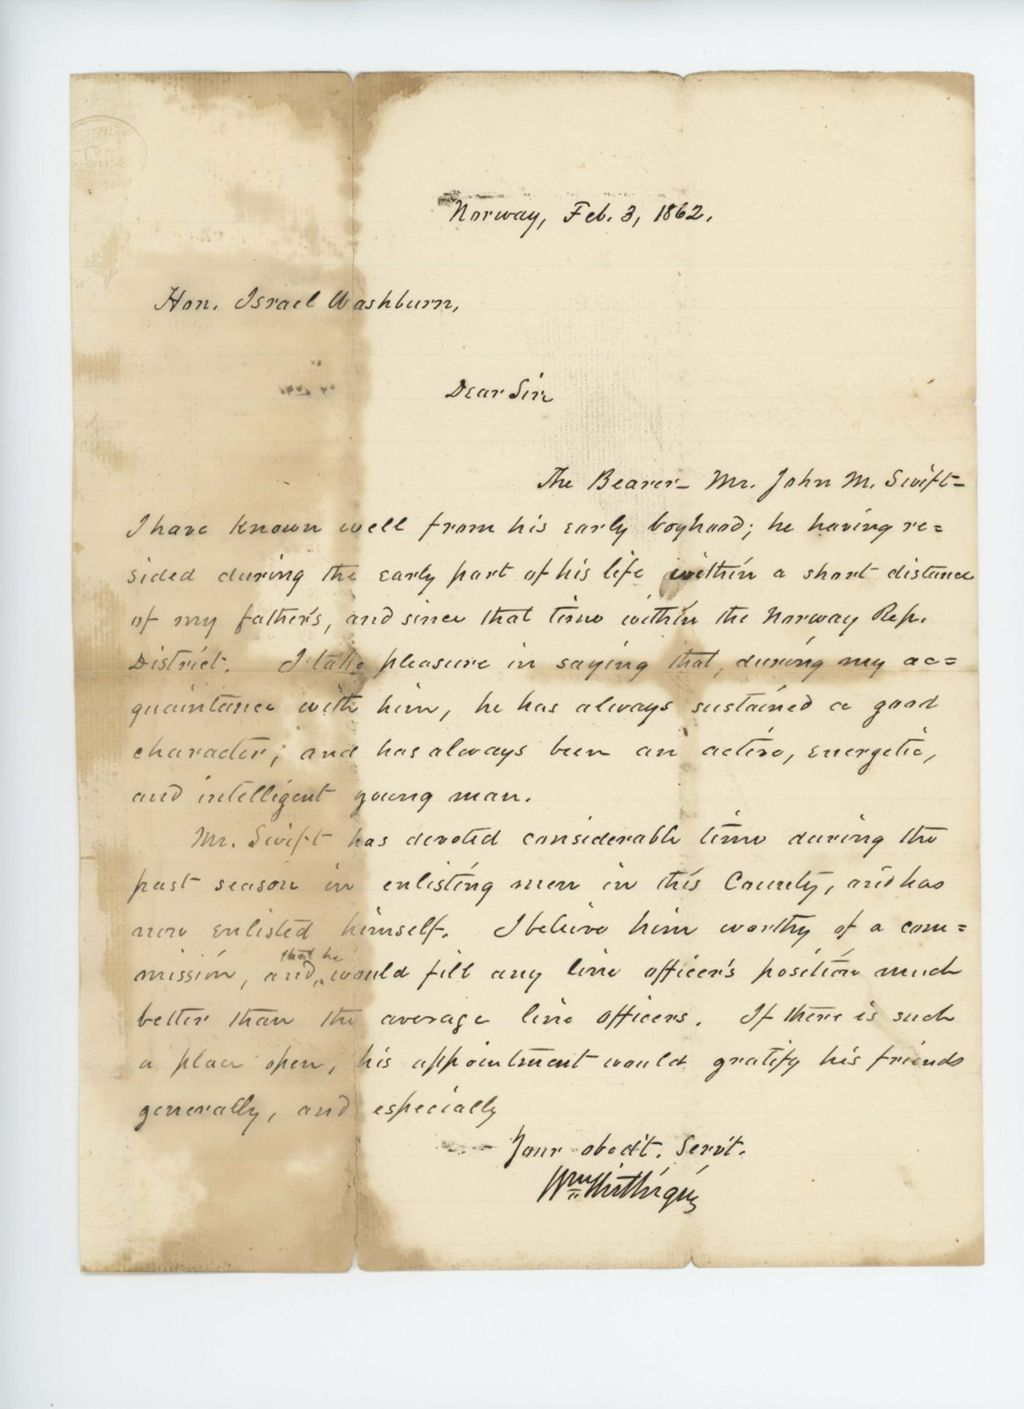 Norway, Feb. 3, 1862.
Hon. Israel Washburn,
Dear Sir
The Bearer – Mr. John M. Swift –
I have known well from his early boyhood; he having re=
sided during the early part of his life within a short distance
of my father's, and since that time within the Norway Rep.
District. I take pleasure in saying that, during my ac=
quaintance with him, he has always sustained a good
character; and has always been an active, energetic,
and intelligent young man.
Mr. Swift has devoted considerable time during the
past season in enlisting men in this County, and has
now enlisted himself. I believe him worthy of a com=
mission, and that he would fill any line officer's position much
better than the average line officers. If there is such
a place open, his appointment would gratify his friends
generally, and especially
Your obedt. Servt.
Wm